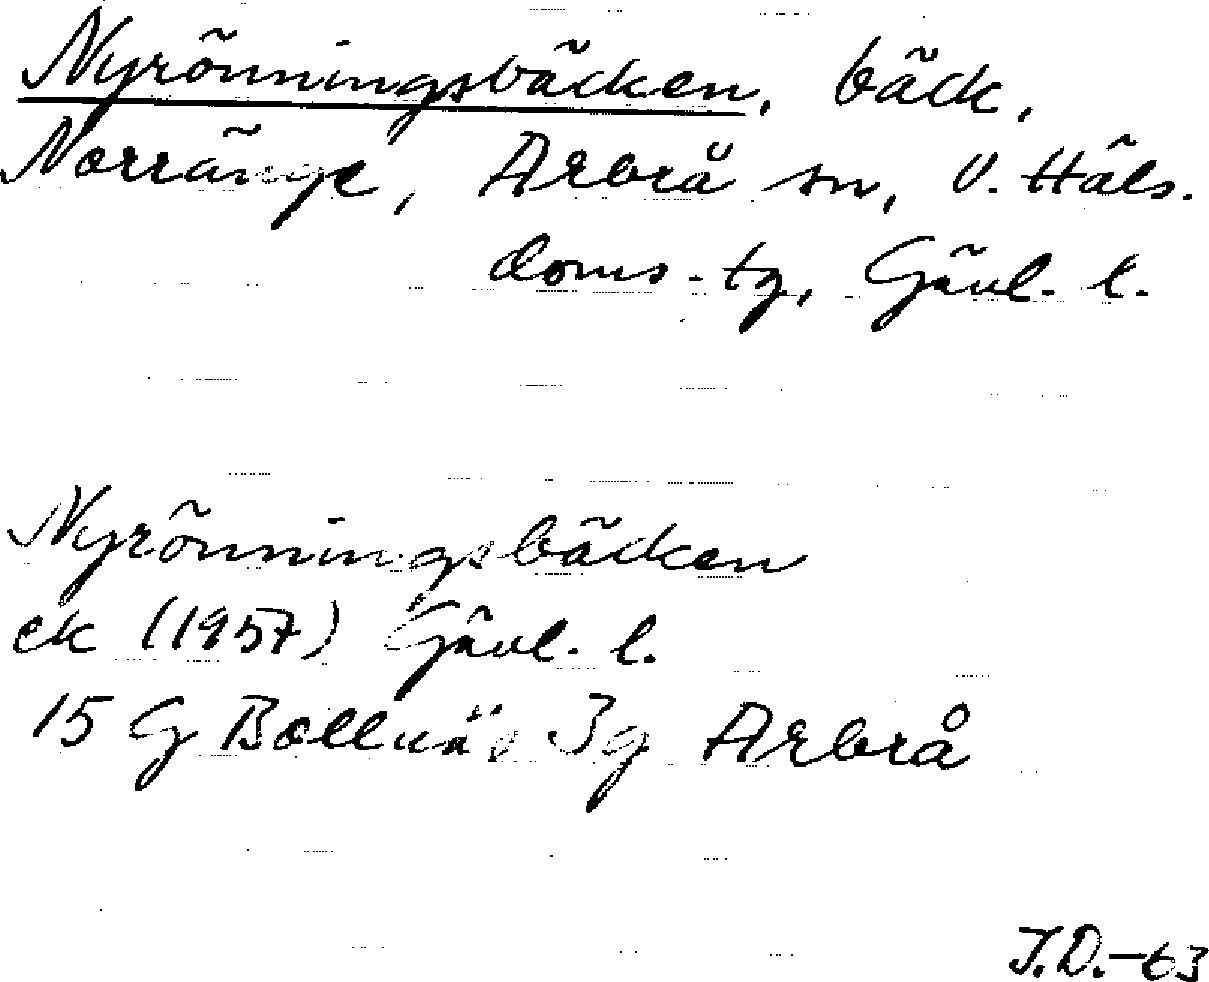 Nyrönningsbäcken, bäck,
Norränge, Arbrå sn, V. Häls.
doms-tg, Gävl. l.
Nyrönningsbäcken
ek (1957) Gävl. l.
15 G Bollnäs 3g Arbrå
J.D.-63